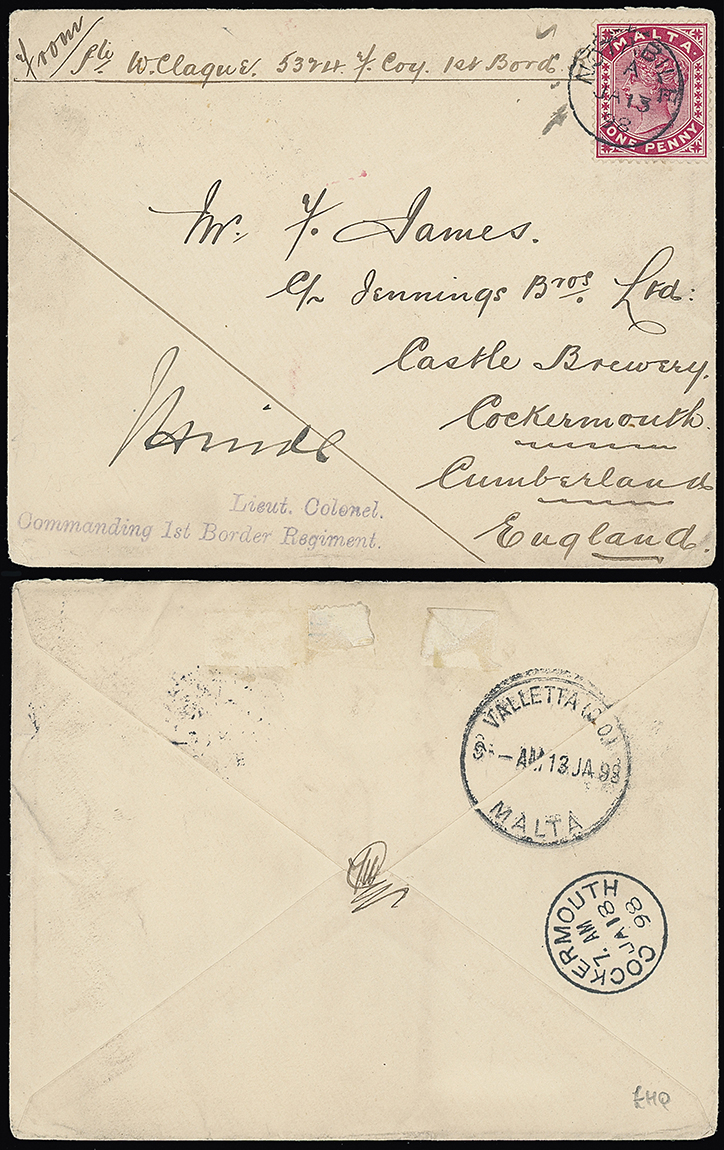 From Pte W. Clague. 5324 F. Coy. 1st Bord.
MALTA.
ONE PENNY
A
JA 13
98
Mr. F. James.
c/o Jennings Bros. Ltd:
Castle Brewery.
Cockermouth.
Cumberland
England.
Lieut. Colonel.
Commanding 1st Border Regiment.
VALLETTA (G.O.)
AM 13 JA 98
MALTA
COCKERMOUTH
7. AM
JA 18
98